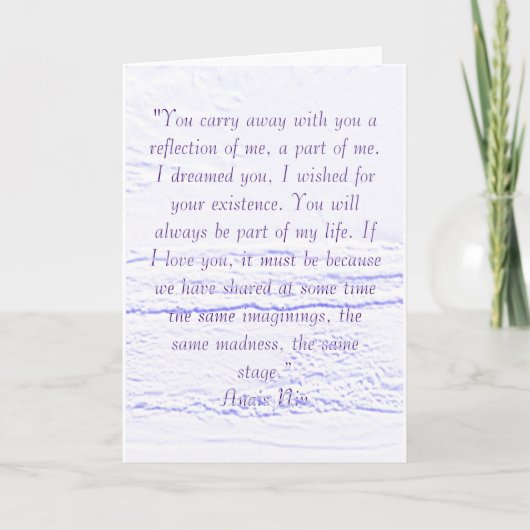 "You carry away with you a
reflection of me, a part of me.
I dreamed you, I wished for
your existence. You will
always be part of my life. If
I love you, it must be because
we have shared at some time
the same imaginings, the
same madness, the same
stage."
Anais Nin